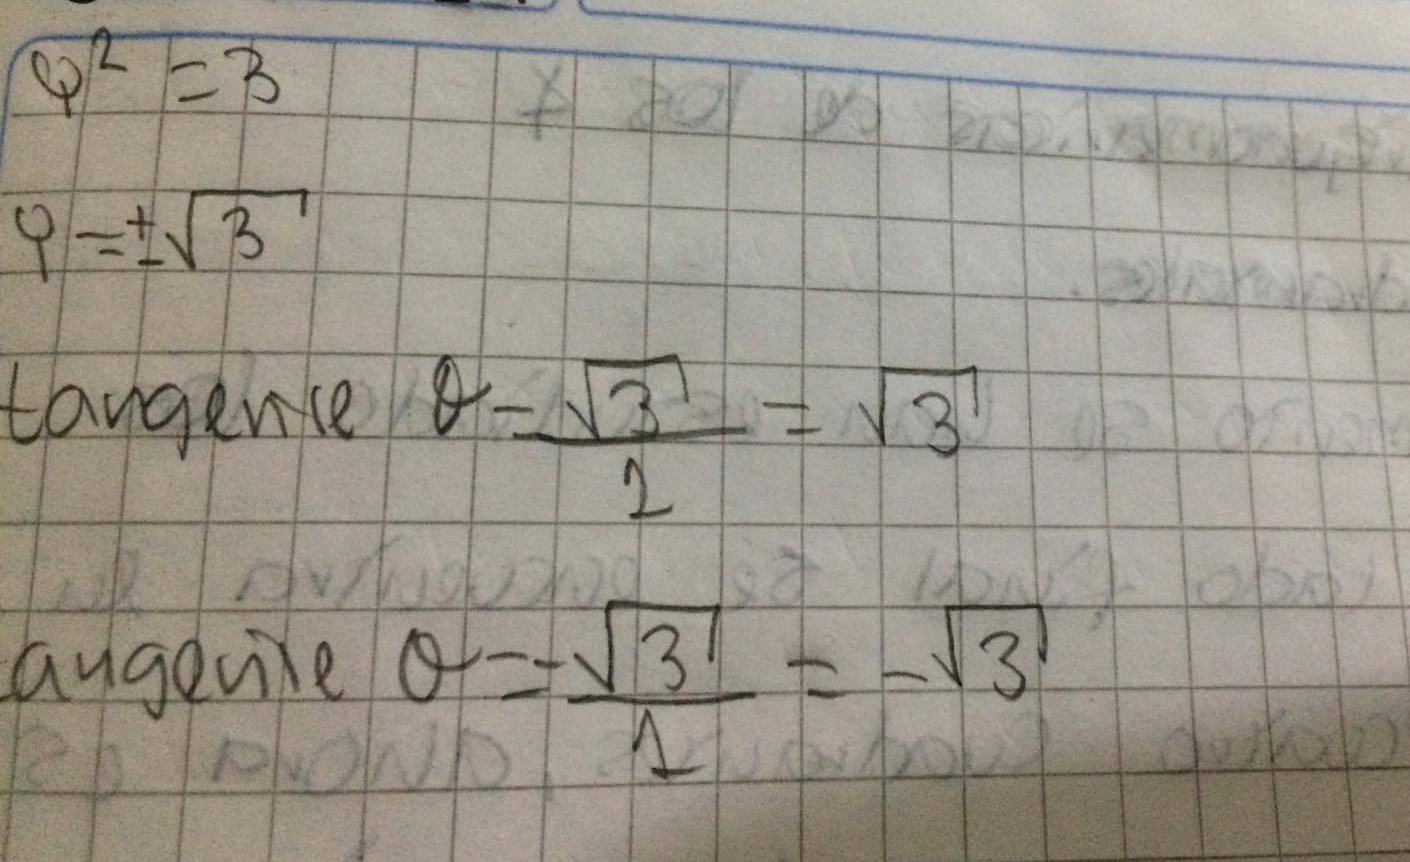 φ² = 3
φ = ±√3
tangente θ = √3/1 = √3
tangente θ = -√3/1 = -√3